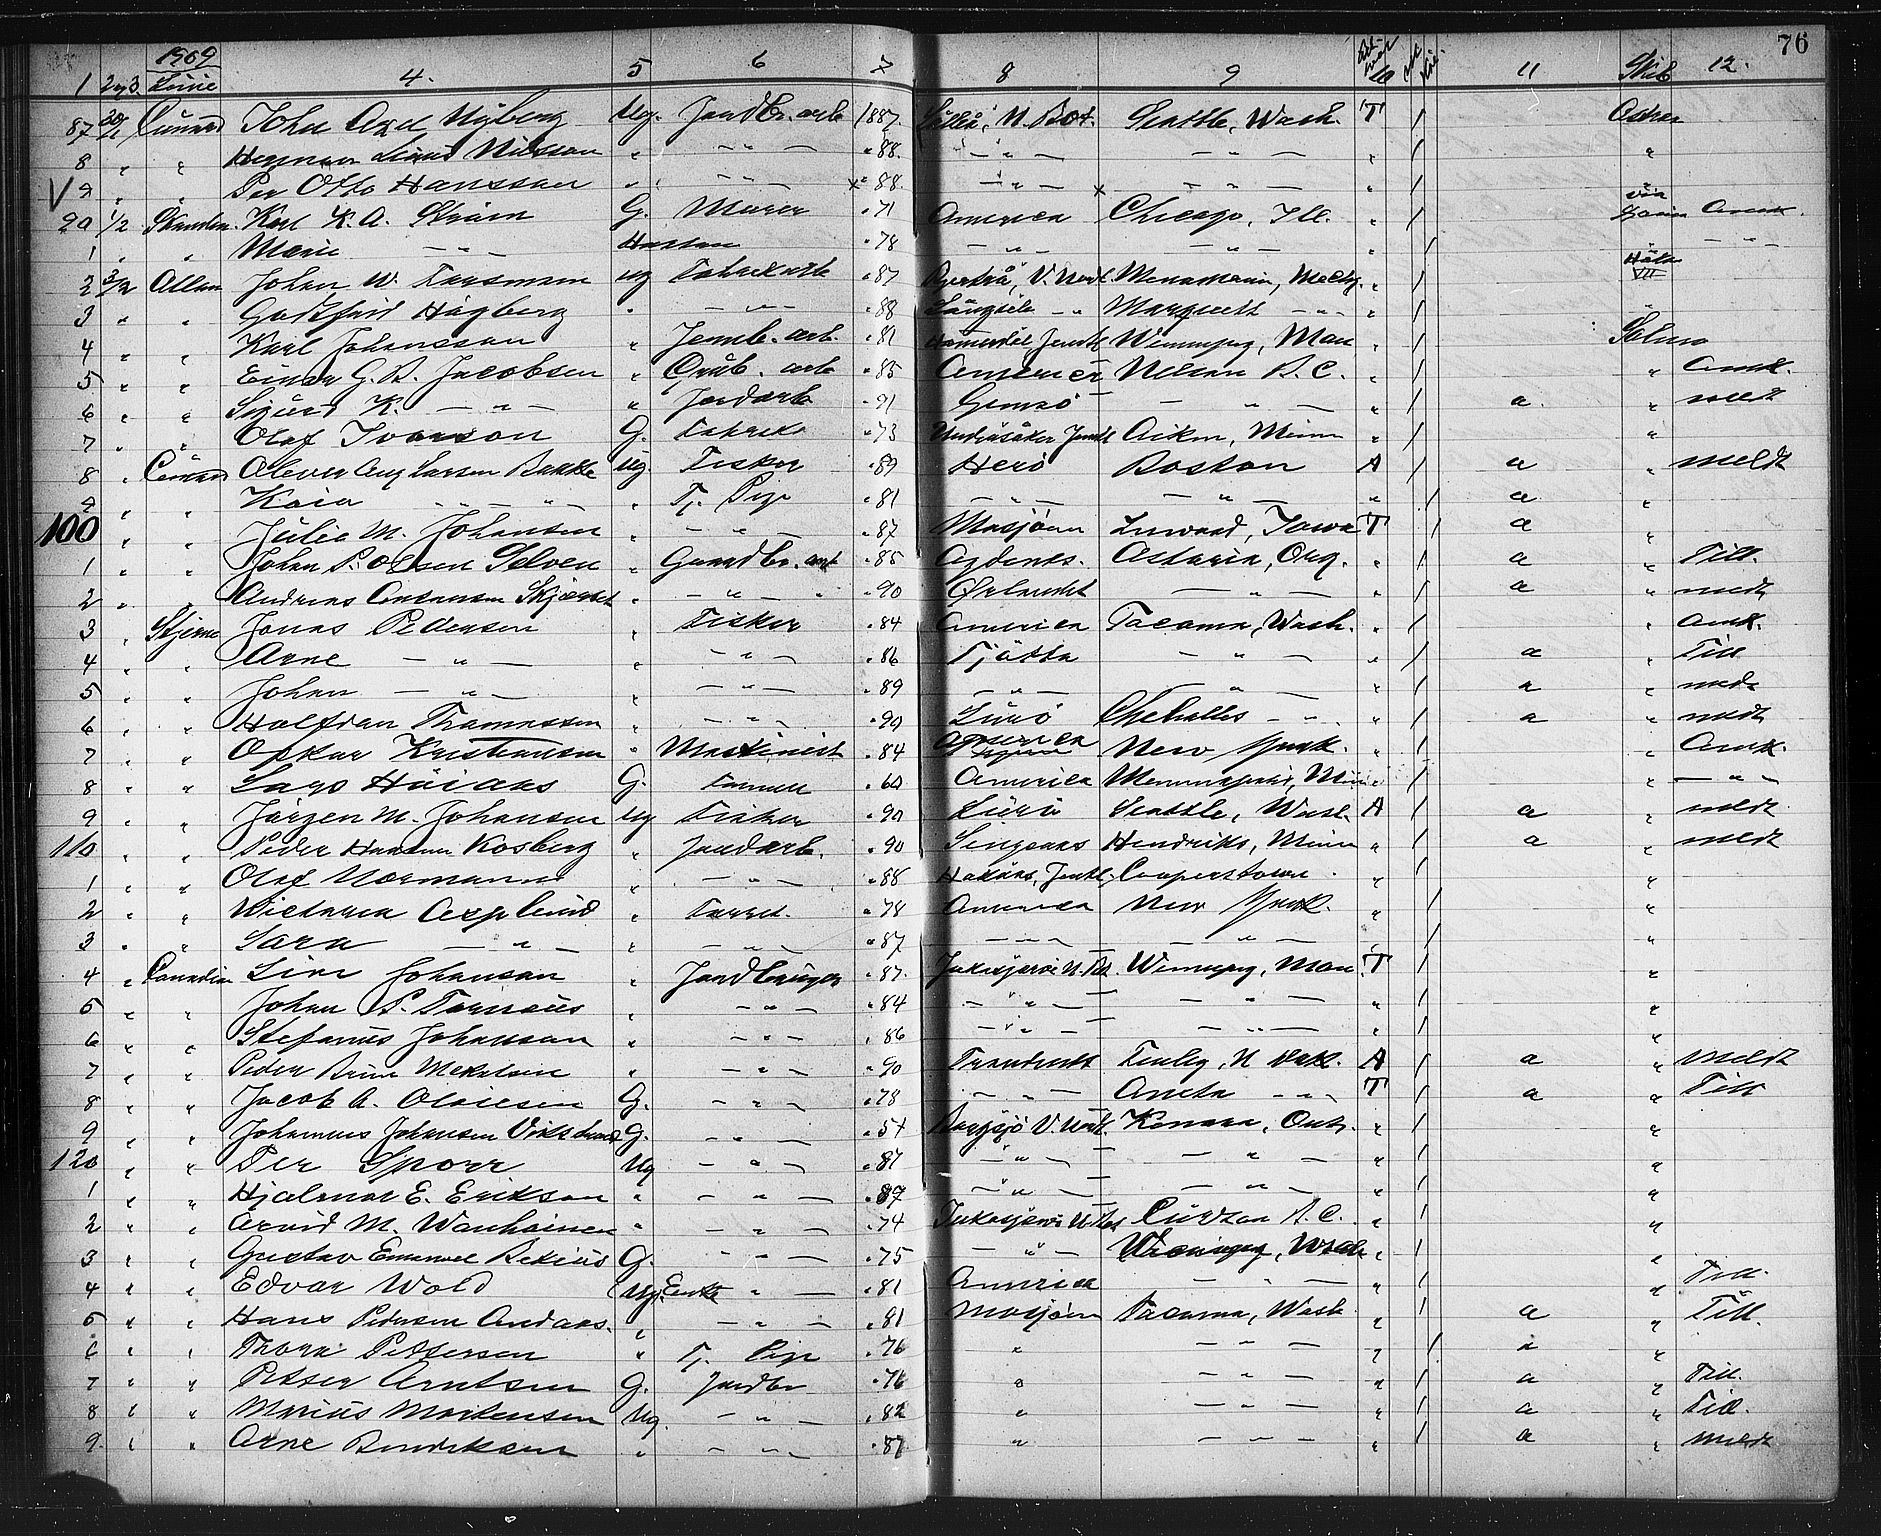 1909 76
1 2 og 3. Linie 4. 5 6 7 8 9 10 11 Skib 12.
87 Cunard John Axel Nyberg Ug. Jordbr. arb 1887. Luleå, N. Bot. Seattle, Wash. T / Oihonna
8 " " Herman Linus Nilsson " — " — " 88. — " — — " — " / "
V 9 " " Per Otto Hansson " — " — × " 88. — " — × — " — " / "
90 1/2 Skandin. Karl K. A. Ström G. Murer " 71 America Chicago, Ill. " / via Amk.
1 " " Marie — " — Hustru " 78 — " — — " — " / — " —
2 3/2 Allan Johan W. Forsman ug Fabrikarb " 87 V. Norrl Menominee, Mich. " /
3 " " Gottfrid Högberg " — " — " 88 Långsele — " Marquett — " — " / "
4 " " Karl Johansson " Jernb. arb. " 81 Hammerdal Jemtl Winnipeg, Man " / Salmo
5 " " Einar G. B. Jacobsen " Grub. arb " 85 America Nelson B. C. " / " Amk.
6 " " Sigurd K. — " — " Jordarb " 91 Gemsö — " — " / a " meldt
7 " " Olof Ivarson G. Fabrik " 73 Undersåker Jemtl Aitkin, Minn " / "
8 " Cunard Oliver Aug Larsen Bakke Ug Fisker " 89 Herö Boston A / a " meldt
9 " " Kaia " " " " Tj. Pige " 81 — " — — " — " / a "
100 " " Julie M. Johansen " — " — " 87 Mosjöen Inwood, Iowa T / a "
1 " " Johan P. Olsen Selven " Gaardbr. arb " 85 Agdenes. Astoria, Org. " / a " Till.
2 " " Andreas Skjærvet " — " — " 90 Ørlandet — " — " / a " meldt
3 " Stjerne Jonas Pedersen " Fisker " 84 America Tacoma, Wash. " / " Amk.
4 " " Arne — " — " — " — " 86 Tjötta — " — " / a " Till
5 " " Johan — " — " — " — " 89 — " — — " — " / a " meldt
6 " " Halfdan Thomassen " — " — " 90 Lurö Chehalles — " — " / a " meldt
7 " " Oskar Kristiansen " Maskinist " 84 America New York. " / " Amk.
8 " " Lars Höiaas G. Farmer " 60 America Minneapolis, Min " / " — " —
9 " " Jörgen M. Johansen Ug Fisker " 90 Lurö Seattle, Wash. A / a " meldt
110 " " Peder Hansen Kosberg " Jordarb. " 90 Singsaas Hendriks, Minn " / a " meldt
1 " " Olof Norman " — " — " 88 Hakås, Jemtl. Cooperstown " / "
2 " " Victoria Asplund " Forret. " 78 America New York. " / "
3 " " Sara — " — " — " — " 87 — " — — " — " / "
4 " Canadian Linr Johanson " Jordbruger " 87. Jukasjervi N. Bt. Winnipeg, Man. T / "
5 " " Johan P. Torneus " — " — " 84 — " — — " — " / "
6 " " Stefanus Johanson " — " — " 86 — " — — " — " / "
7 " " Peder Arne Mekelsen " — " — " 90 Trondenes Finley, N Dak. A / a " meldt
8 " " Jacob A. Olaisen G. — " — " 78 — " — Aneta — " — T / a " Till
9 " " Johannes Johansen Vikstrand G. — " — " 54 Borgsjö V. Norl. Kenora, Ont. " / "
120 " " Per Sporr Ug — " — " 87 — " — — " — " / "
1 " " Hjalmar E. Erikson " — " — " 89 — " — — " — " / "
2 " " Arvid M. Wanhainen " — " — " 74 Jukasjervi N. Bot Curzon B. C. " / "
3 " " Gustav Emanuel Bekius G. — " — " 75 — " — " / "
4 " " Edvar Wold Ug. Enke " — " 81 America — " — " / " Till.
5 " " Hans Pedersen Andaas. " — " — " 81 Mosjöen Tacoma, Wash " / a " Till.
6 " " Thora Pettersen " Tj. Pige " 76 " — " — " / a "
7 " " Petter Arntsen G. Jordbr " 76 " — " — " / a " Till.
8 " " Marius Mortensen Ug — " — " 82 " — " — " / a " Till.
9. " " Arne Bendiksen " — " — " 87. " — " — " / a " meldt